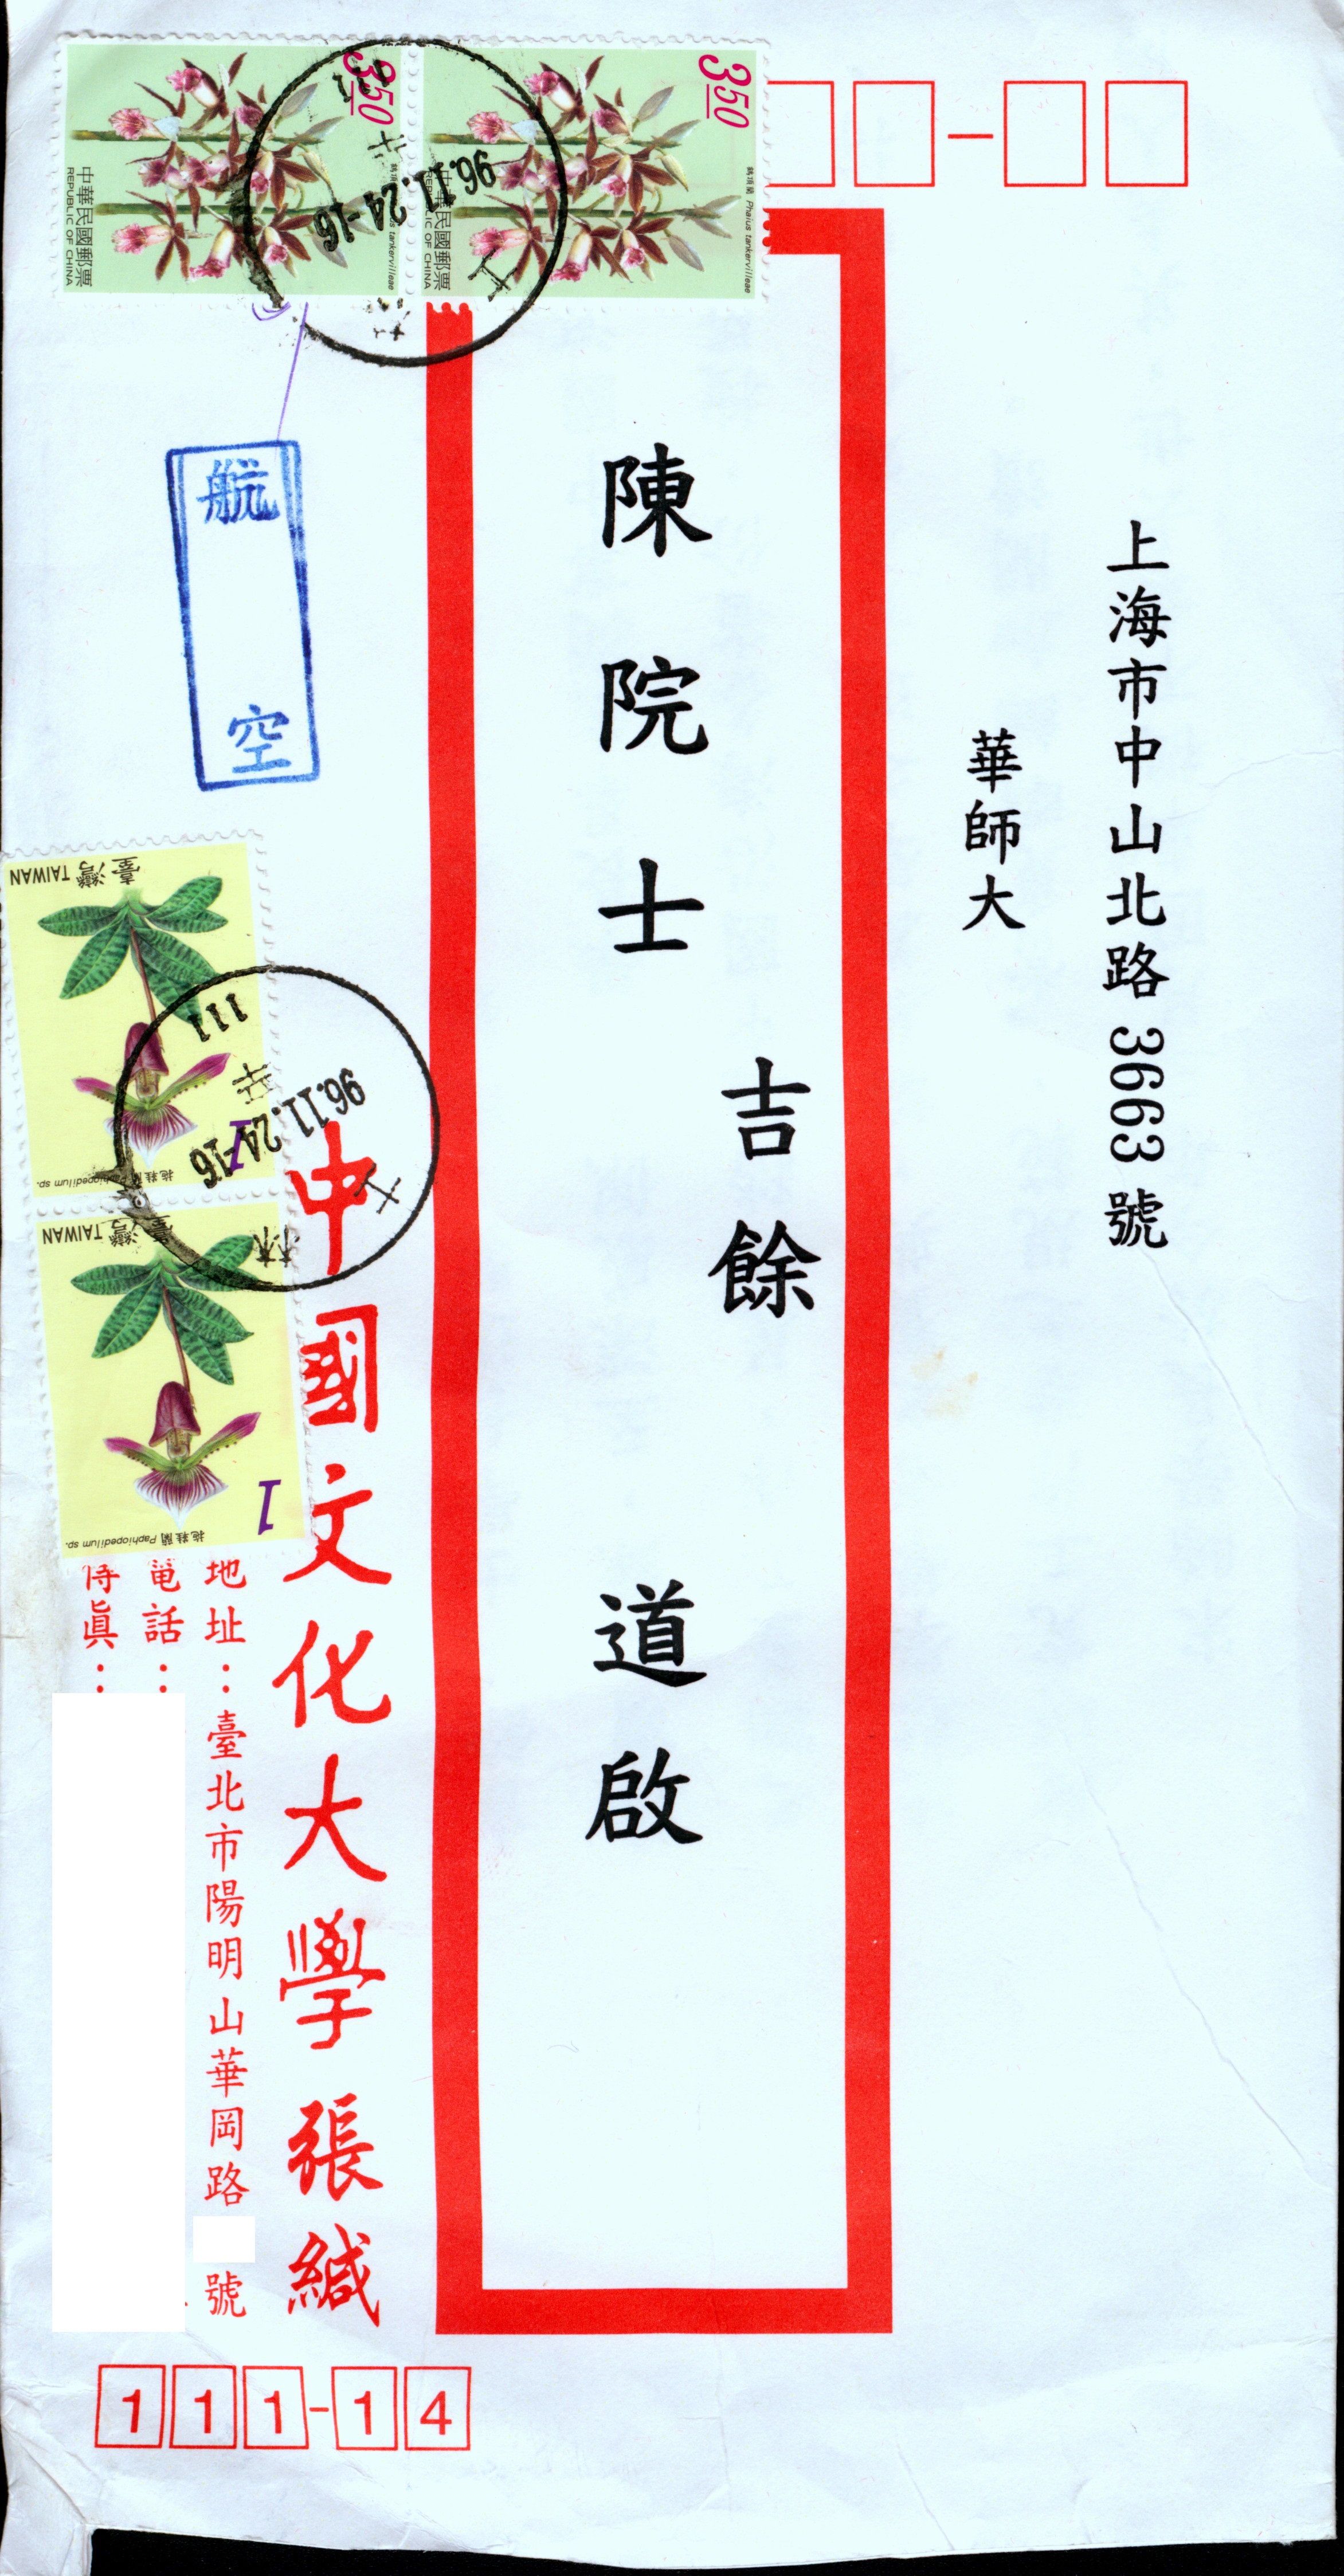 上海市中山北路3663號
華師大
陳院士
吉餘
道啟
3.50
鶴頂蘭 Phaius tankervilleae
中華民國郵票
REPUBLIC OF CHINA
3.50
中華民國郵票
REPUBLIC OF CHINA
96.11.24-16
航空
臺灣 TAIWAN
1
拖鞋蘭 Paphiopedilum sp.
111
96.11.24-16
士林
臺灣 TAIWAN
1
拖鞋蘭 Paphiopedilum sp.
中國文化大學張緘
地址：臺北市陽明山華岡路 號
電話：
傳眞：
111-14